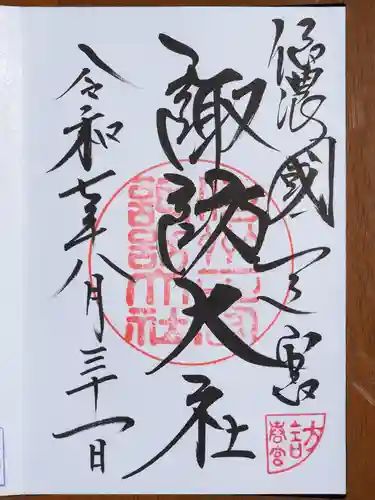 信濃國一之宮
諏訪大社
令和七年八月三十一日
諏訪
春宮